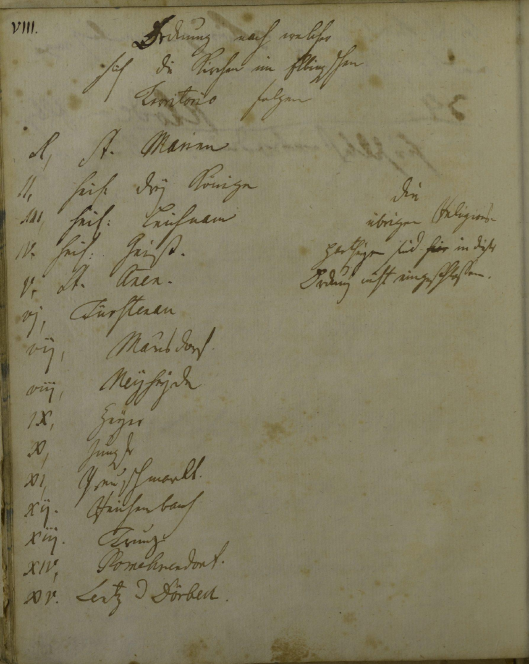 VIII.
Ordnung nach welcher
sich die Kirchen im Elbingschen
Territorio folgen
I, St. Marien
II, heil: drey Könige
III heil: Leichnam
IV. heil: Geist.
V. St. Anen.
vj, Fürstenau
vij, Mausdorf.
viij, Neyheyde
IX, Zeyer
X, Jungfr
XI, Preuschmarkt.
Xij. Reichenbach
Xiij. Trunz.
XIV, Pomehrendorf.
XV. Lentz d Dörbeck.
die
übrigen Religions-
partheyen sind hier in diese
Ordnung nicht eingeschlossen.